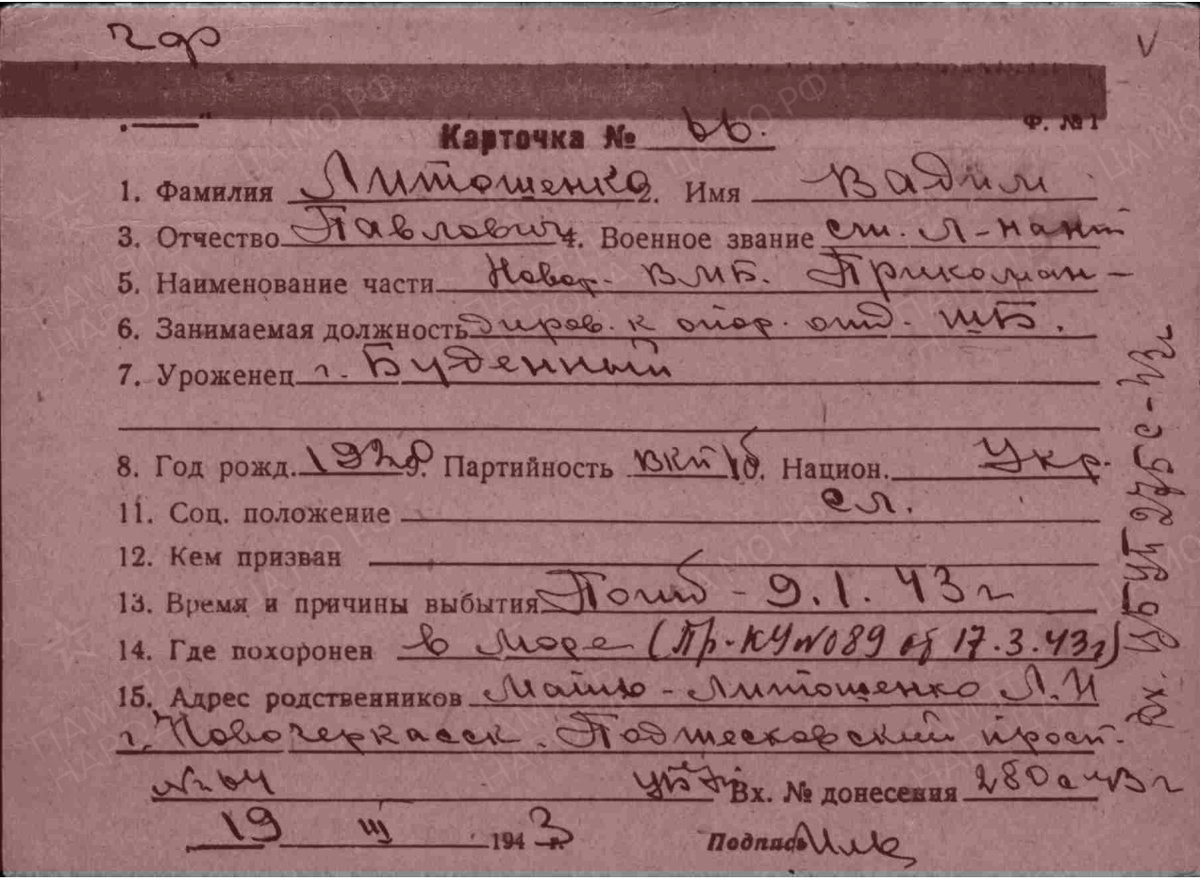 чф
Ф. №1
Карточка № 66.
1. Фамилия Литошенко 2. Имя Вадим
3. Отчество Павлович 4. Военное звание ст. л-нант
5. Наименование части Новор. ВМБ. Прикоман-
6. Занимаемая должность диров. к опор. отд. ШБ.
7. Уроженец г. Буденный
8. Год рожд. 1920 9. Партийность ВКПб 10. Национ. Укр.
11. Соц. положение сл.
12. Кем призван
13. Время и причины выбытия Погиб - 9.1.43 г
14. Где похоронен в море (Пр-КУ№089 от 17.3.43г)
15. Адрес родственников Мать - Литошенко Л.И
г. Новочеркасск. просп.
№ 64 Вх. № донесения 280с-43 г
19 III 1943 г. Подпись
Вх.